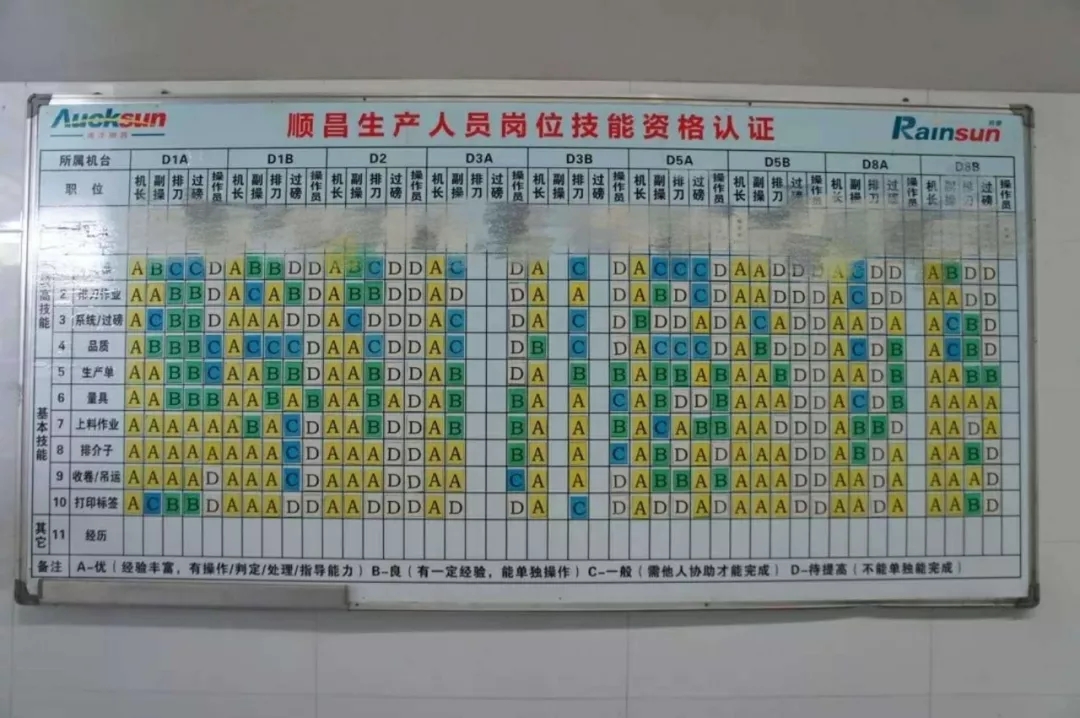 Aucksun
顺昌生产人员岗位技能资格认证
Rainsun
所属机台 D1A D1B D2 D3A D3B D5A D5B D8A D8B
职位 机长 副操 排刀 过磅 操作员 机长 副操 排刀 过磅 操作员 机长 副操 排刀 过磅 操作员 机长 副操 排刀 过磅 操作员 机长 副操 排刀 过磅 操作员 机长 副操 排刀 过磅 操作员 机长 副操 排刀 过磅 操作员 机长 副操 排刀 过磅 操作员 机长 副操 过磅 操作员
A B C C D A B B D D A B C D D A C D A C D A C C C D A A D D D A C D D A B D D
高技能
2 排刀作业 A A B B D A C A B D A B B D D A D D A A D A B D C D A A D D D A C D D A A D D
3 系统/过磅 A C B B D A A A D D A C D D D A C D A C D B D D A D A C A D D A A D A A C B D
4 品质 A B B B C A C C C D A A C D D A C D B C D A C C C D A B D D D A C D B A C B D
5 生产单 A A B B C A A B B D A A B D D A B D A B B A B B A B A A B D D A A D B A A B B
基本技能
6 量具 A A B B B A A B A B A A B A D A B B A A C A B D D B A A A D D A C D B A A A A
7 上料作业 A A A A A A B A C D A A B D D A B B A A B A C A B B A A D D D A B B D A A D A
8 排介子 A A A A A A A A C D A A A D D A A B A A C A B A A A A A A D D A B D A A A B D
9 收卷/吊运 A A A A D A A A C D A A A D D A A C A A D A B B A B A A A D D A A D A A A A D
10 打印标签 A C B B D A A A D D A A D D D A D D A C D A D D A D A A A D D A A D A A A B D
其它
11 经历
备注 A-优(经验丰富，有操作/判定/处理/指导能力) B-良(有一定经验，能单独操作) C-一般(需他人协助才能完成) D-待提高(不能单独能完成)